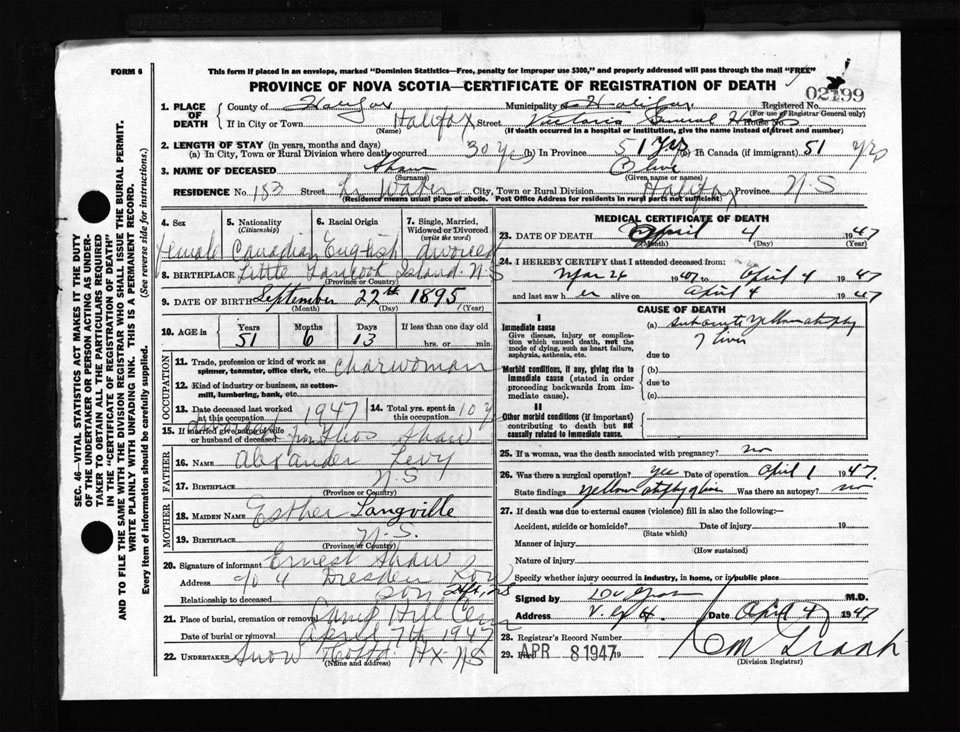 FORM 6
This form if placed in an envelope, marked "Dominion Statistics—Free, penalty for improper use $300," and properly addressed will pass through the mail "FREE"
PROVINCE OF NOVA SCOTIA—CERTIFICATE OF REGISTRATION OF DEATH
02199
1. PLACE OF DEATH
County of Halifax Municipality of Halifax Registered No.
(For use of Registrar General only)
If in City or Town Halifax Street Victoria General Hosp House No.
(Name) (If death occurred in a hospital or institution, give the name instead of street and number)
2. LENGTH OF STAY (in years, months and days)
(a) In City, Town or Rural Division where death occurred 30 Yrs (b) In Province 51 Yrs (c) In Canada (if immigrant) 51 Yrs
3. NAME OF DECEASED Shaw Olive
(Surname) (Given name or names)
RESIDENCE No. 153 Street Lr Water City, Town or Rural Division Halifax Province N-S
(Residence means usual place of abode. Post Office Address for residents in rural parts not sufficient)
4. Sex
5. Nationality (Citizenship)
6. Racial Origin
7. Single, Married, Widowed or Divorced (write the word)
Female Canadian English divorced
8. BIRTHPLACE Little Tancook Island N-S
(Province or Country)
9. DATE OF BIRTH September 22th 1895
(Month) (Day) (Year)
10. AGE in Years Months Days If less than one day old
51 6 13 hrs. or min.
OCCUPATION
11. Trade, profession or kind of work as spinner, teamster, office clerk, etc. Charwoman
12. Kind of industry or business, as cotton-mill, lumbering, bank, etc.
13. Date deceased last worked at this occupation 1947
14. Total yrs. spent in this occupation 10 Yrs
15. If married give name of wife or husband of deceased divorced from Shaw
FATHER
16. NAME Alexander Levy
17. BIRTHPLACE N-S
(Province or Country)
MOTHER
18. MAIDEN NAME Esther Langville
19. BIRTHPLACE N-S.
(Province or Country)
20. Signature of informant Ernest Shaw
Address c/o 4 Dresden Row
Relationship to deceased Son Hfx, NS
21. Place of burial, cremation or removal Camp Hill Cem
Date of burial or removal April 7th 1947
22. UNDERTAKER Snow Hx-NS
(Name and address)
MEDICAL CERTIFICATE OF DEATH
23. DATE OF DEATH April 4 1947
(Month) (Day) (Year)
24. I HEREBY CERTIFY that I attended deceased from:
Mar 26 1947 to April 4 1947
and last saw her alive on April 4 1947
CAUSE OF DEATH
I
Immediate cause
Give disease, injury or complication which caused death, not the mode of dying, such as heart failure, asphyxia, asthenia, etc.
(a) subacute yellow atrophy
of liver
due to
Morbid conditions, if any, giving rise to immediate cause (stated in order proceeding backwards from immediate cause).
(b)
due to
(c)
II
Other morbid conditions (if important) contributing to death but not causally related to immediate cause.
25. If a woman, was the death associated with pregnancy? no
26. Was there a surgical operation? yes Date of operation April 1 1947.
State findings yellow atrophy of liver Was there an autopsy? no
27. If death was due to external causes (violence) fill in also the following:—
Accident, suicide or homicide? Date of injury 19
(State which)
Manner of injury
(How sustained)
Nature of injury
Specify whether injury occurred in industry, in home, or in public place
Signed by M.D.
Address V. G. H. Date April 4 1947
28. Registrar's Record Number
29. Filed APR 8 1947 19
(Division Registrar)
SEC. 46—VITAL STATISTICS ACT MAKES IT THE DUTY
OF THE UNDERTAKER OR PERSON ACTING AS UNDER-
TAKER TO OBTAIN ALL THE PARTICULARS REQUIRED
IN THE "CERTIFICATE OF REGISTRATION OF DEATH"
AND TO FILE THE SAME WITH THE DIVISION REGISTRAR WHO SHALL ISSUE THE BURIAL PERMIT.
WRITE PLAINLY WITH UNFADING INK. THIS IS A PERMANENT RECORD.
Every item of information should be carefully supplied. (See reverse side for instructions.)